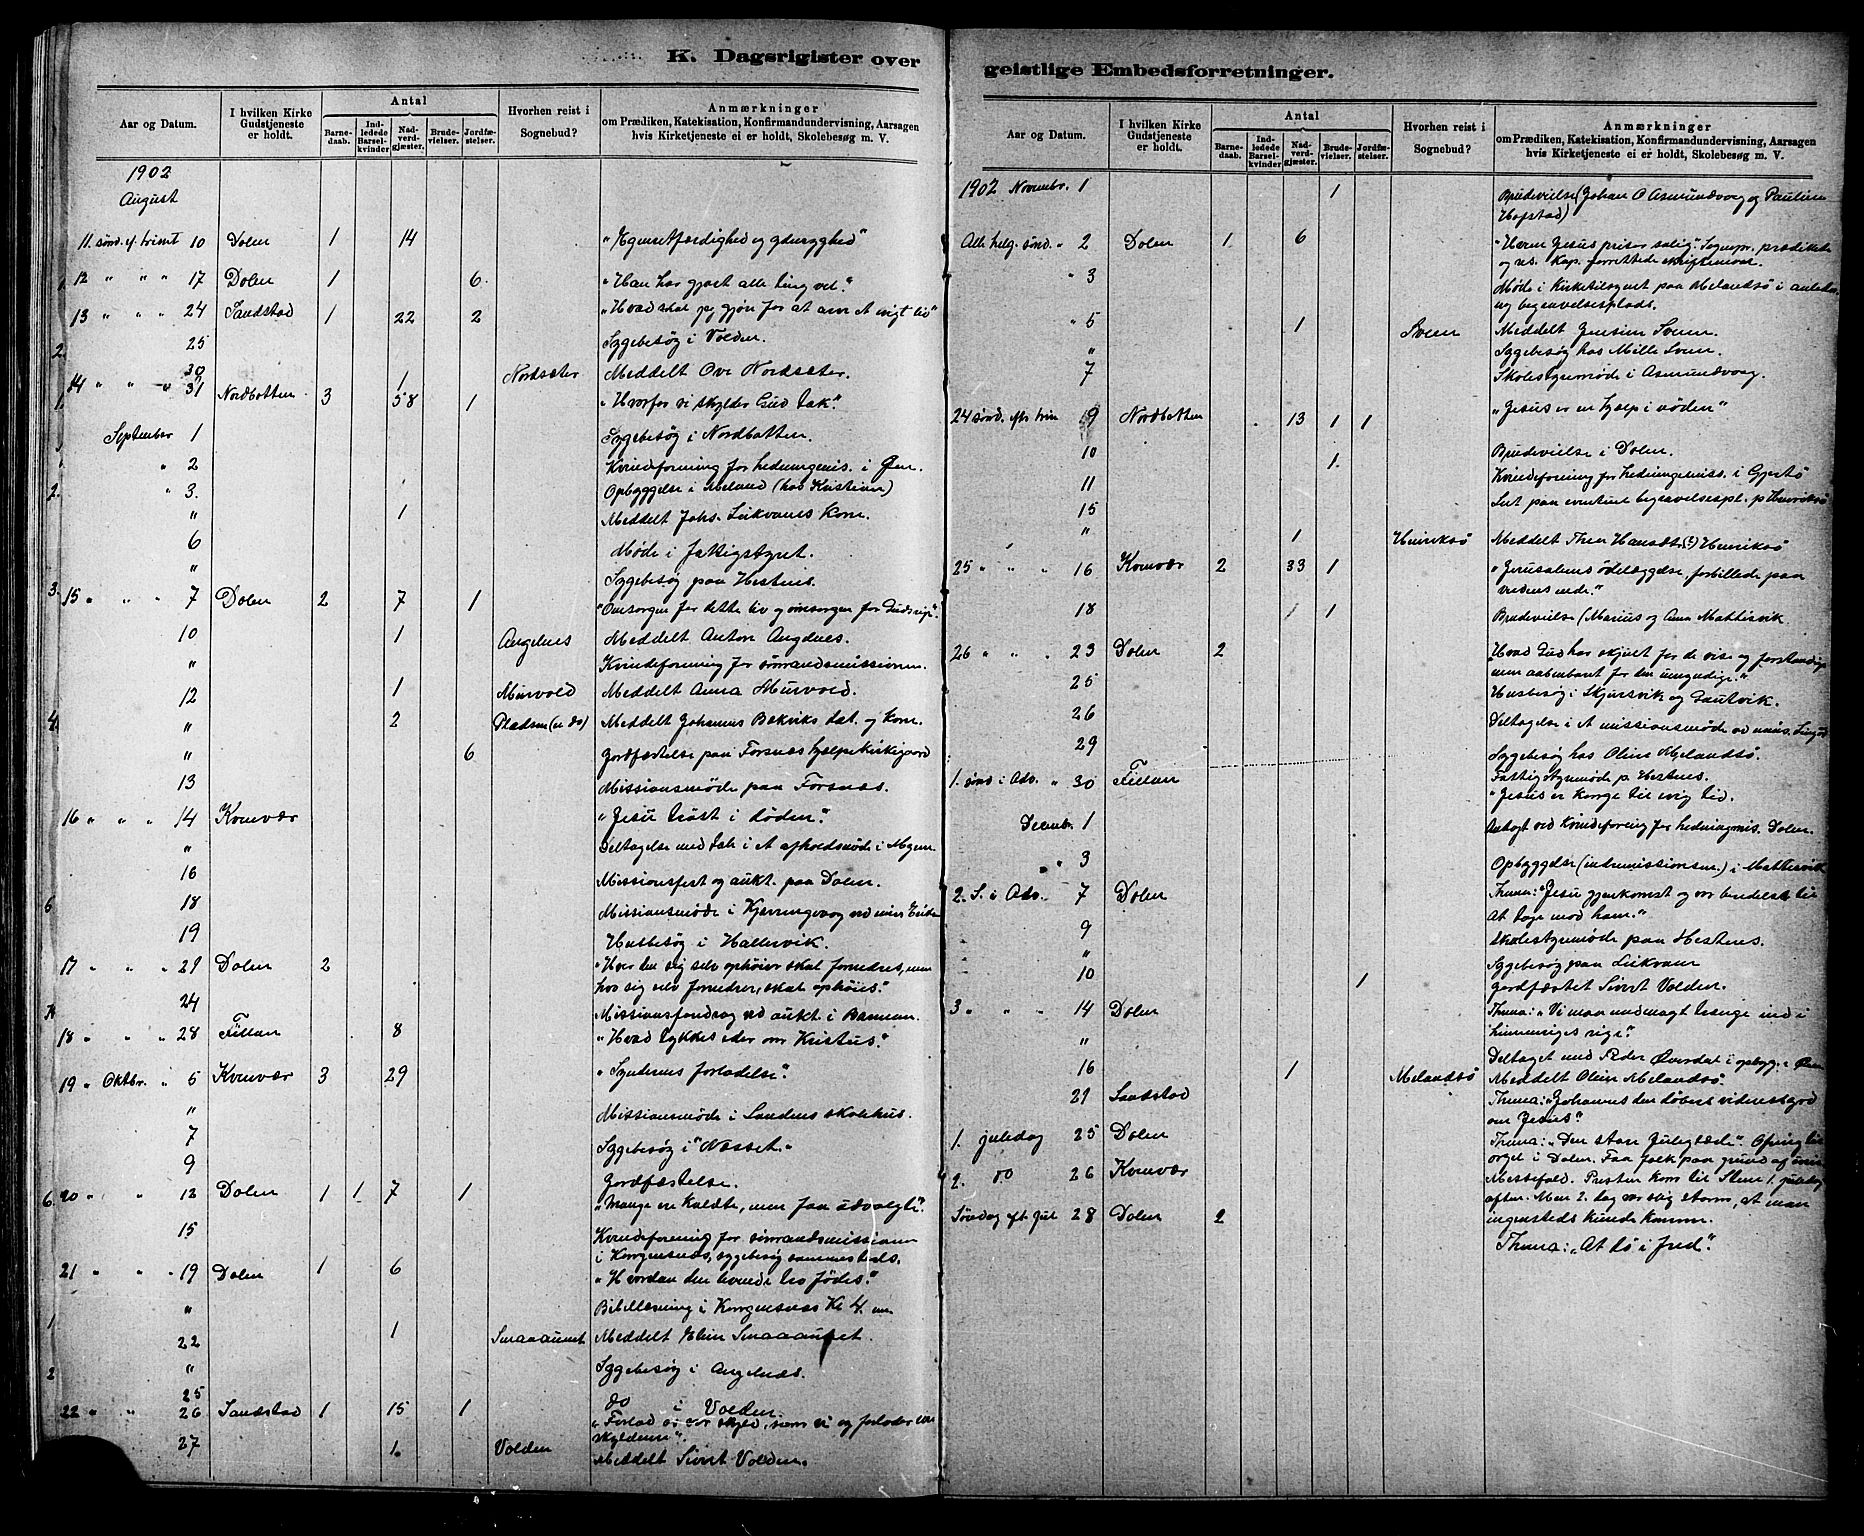 K. Dagsrigister over
geistlige Embedsforretninger.
Aar og Datum.
I hvilken Kirke Gudstjeneste er holdt.
Antal
Barnedaab.
Indledede Barselkvinder
Nadverdgjæster.
Brudevielser.
Jordfæstelser.
Hvorhen reist i Sognebud?
Anmærkninger
om Prædiken, Katekisation, Konfirmandundervisning, Aarsagen
hvis Kirketjeneste ei er holdt, Skolebesøg m. V.
1902
August
11. sønd. ef. trinit 10 Dolm 1 14
12 " " " 17 Dolm 1 6 "Han har gjort alle ting vel."
13 " " " 24 Sandstad 1 22 2 "Hvad skal jeg gjøre for at arve et evigt liv"
25 Sygebesøg i Volden.
30 1 Nordsæter Meddelt Ove Nordsæter.
14 " " " 31 Nordbotten 3 58 1 "Hvorfor vi skylder Gud tak."
September 1 Sygebesøg i Nordbotten.
" 2 Kvindeforening for hedningemis. i Øen.
" 3. Opbyggelse i Meland (hos Kristian)
" 1 Meddelt Johs. Leikvams kone.
6 Møde i fattigstyret.
" Sygebesøg paa Hestnes.
15 " " " 7 Dolm 2 7 1 "Omsorgen for dette liv og omsorgen for Guds rige".
10 1 Angelnes Meddelt Anton Angelnes.
" Kvindeforening for sømandsmissionen.
12 1 Murvold Meddelt Anna Murvold.
" 2 Pladsen Meddelt Johannes Bekviks dat. og kone.
" 6 Jordfæstelse paa Forsnes hjælpekirkegaard
13 Missionsmøde paa Forsnes.
16 " " " 14 Kvenvær "Jesu trøst i døden."
" Deltagelse med tale i et afholdsmøde i
16 Missionsfest og aukt. paa Dolm.
18 Missionsmøde i Kjerringvaag ved
19 Husbesøg i Hallervik.
17 " " " 21 Dolm 2 "Hver den sig selv ophøier skal fornedres, men
hvo sig selv fornedrer, skal ophøies."
24 Missionsforedrag ved aukt. i Barman.
18 " " " 28 Fillan 8 "Hvad tykkes eder om Kristus."
19 " Oktbr. " 5 Kvenvær 3 29 "Syndernes forladelse."
" Missionsmøde i Sandens skolehus.
7 Sygebesøg i "Nesset."
9 Jordfæstelse.
20 " " 12 Dolm 1 1 7 1 "Mange ere kaldte, men faa udvalgte".
15 Kvindeforening for sømandsmissionen
i Korgensnes, sygebesøg sammesteds.
21 " " " 19 Dolm 1 6 "Hvordan den levende tro fødes."
" Bibellæsning i Korgensnes Kl 4. em
22 1 Smaaaunet Meddelt Elen Smaaaunet.
" Sygebesøg i Angelnes.
25 do i Volden
22 " " 26 Sandstad 1 15 1 "Forlad os vor skyld, som vi og forlader vore
skyldnere".
27 1. Volden Meddelt Sivert Volden.
Aar og Datum.
I hvilken Kirke Gudstjeneste er holdt.
Antal
Barnedaab.
Indledede Barselkvinder
Nadverdgjæster.
Brudevielser.
Jordfæstelser.
Hvorhen reist i Sognebud?
Anmærkninger
om Prædiken, Katekisation, Konfirmandundervisning, Aarsagen
hvis Kirketjeneste ei er holdt, Skolebesøg m. V.
1902 Novembr. 1 1 Brudevielse (Johan O Asmundvaag og Pauline
Hopstad)
Alle helg. sønd. " 2 Dolm 1 6 "Hvem Jesus priser salig". Sognepr. prædikede
og res. kap. forrettede skriftemaal.
" 3 Møde i Kirketilsynet paa Melandsø i anledn.
ny begravelsesplads.
" 5 1 Sveen Meddelt Jensine Sveen.
" Sygebesøg hos Mille Sveen.
7 Skolestyremøde i Asmundvaag.
24 sønd. eftr trin 9 Nordbotten 13 1 1 "Jesus er en hjælp i nøden"
10 1. Brudevielse i Dolm.
11 Kvindeforening for hedningemis. i Gjertsø
15 Seet paa eventuel begravelsespl. p. Henriksø
" 1 Henriksø Meddelt Thea Henriksø
25 " " " 16 Kvenvær 2 33 1 "Jerusalems ødelæggelse forbillede paa
verdens ende."
18 1 Brudevielse (Marius og Anna Mattisvik
26 " " " 23 Dolm 2 "Hvad Gud har skjult for de vise og forstandige
men aabenbaret for de umyndige."
25 Husbesøg i Skjærsvik og Gautvik.
26 Deltagelse i et missionsmøde ved
29 Sygebesøg hos Oline Melandsø.
Fattigstyremøde p. Hestnes.
1. sønd i Adv. " 30 Fillan "Jesus er konge til evig tid.
Decembr. 1 Andagt ved Kvindeforening for hedningmis. Dolm.
" 3 Opbyggelse (indremissionsm.) i Mattisvik
2. S. i Adv. 7 Dolm Thema: "Jesu gjenkomst og vor beredelse til
at tage mod ham."
9 Skolestyremøde paa Hestnes.
" Sygebesøg paa Leikvam
10 1 Jordfæstet Sivert Volden.
3 " " " 14 Dolm Thema: "Vi maa med magt trænge ind i
himmeriges rige".
" Deltaget med Peder Øverdal i opbygg. i Øien
16 1 Melandsø Meddelt Oline Melandsø.
21 Sandstad Thema: "Johannes den døbers vidnesbyrd
om Jesus".
1. juledag 25 Dolm Thema: "Den store juleglæde". Ofring til
orgel i Dolm. Faa folk paa grund af
2. do 26 Kvenvær Messefald. Presten kom til Sten 1. juledag
aften. Men 2. dag var slig storm, at man
ingensteds kunde komme.
Søndag eft. Jul 28 Dolm 2 Thema: "At dø i fred".